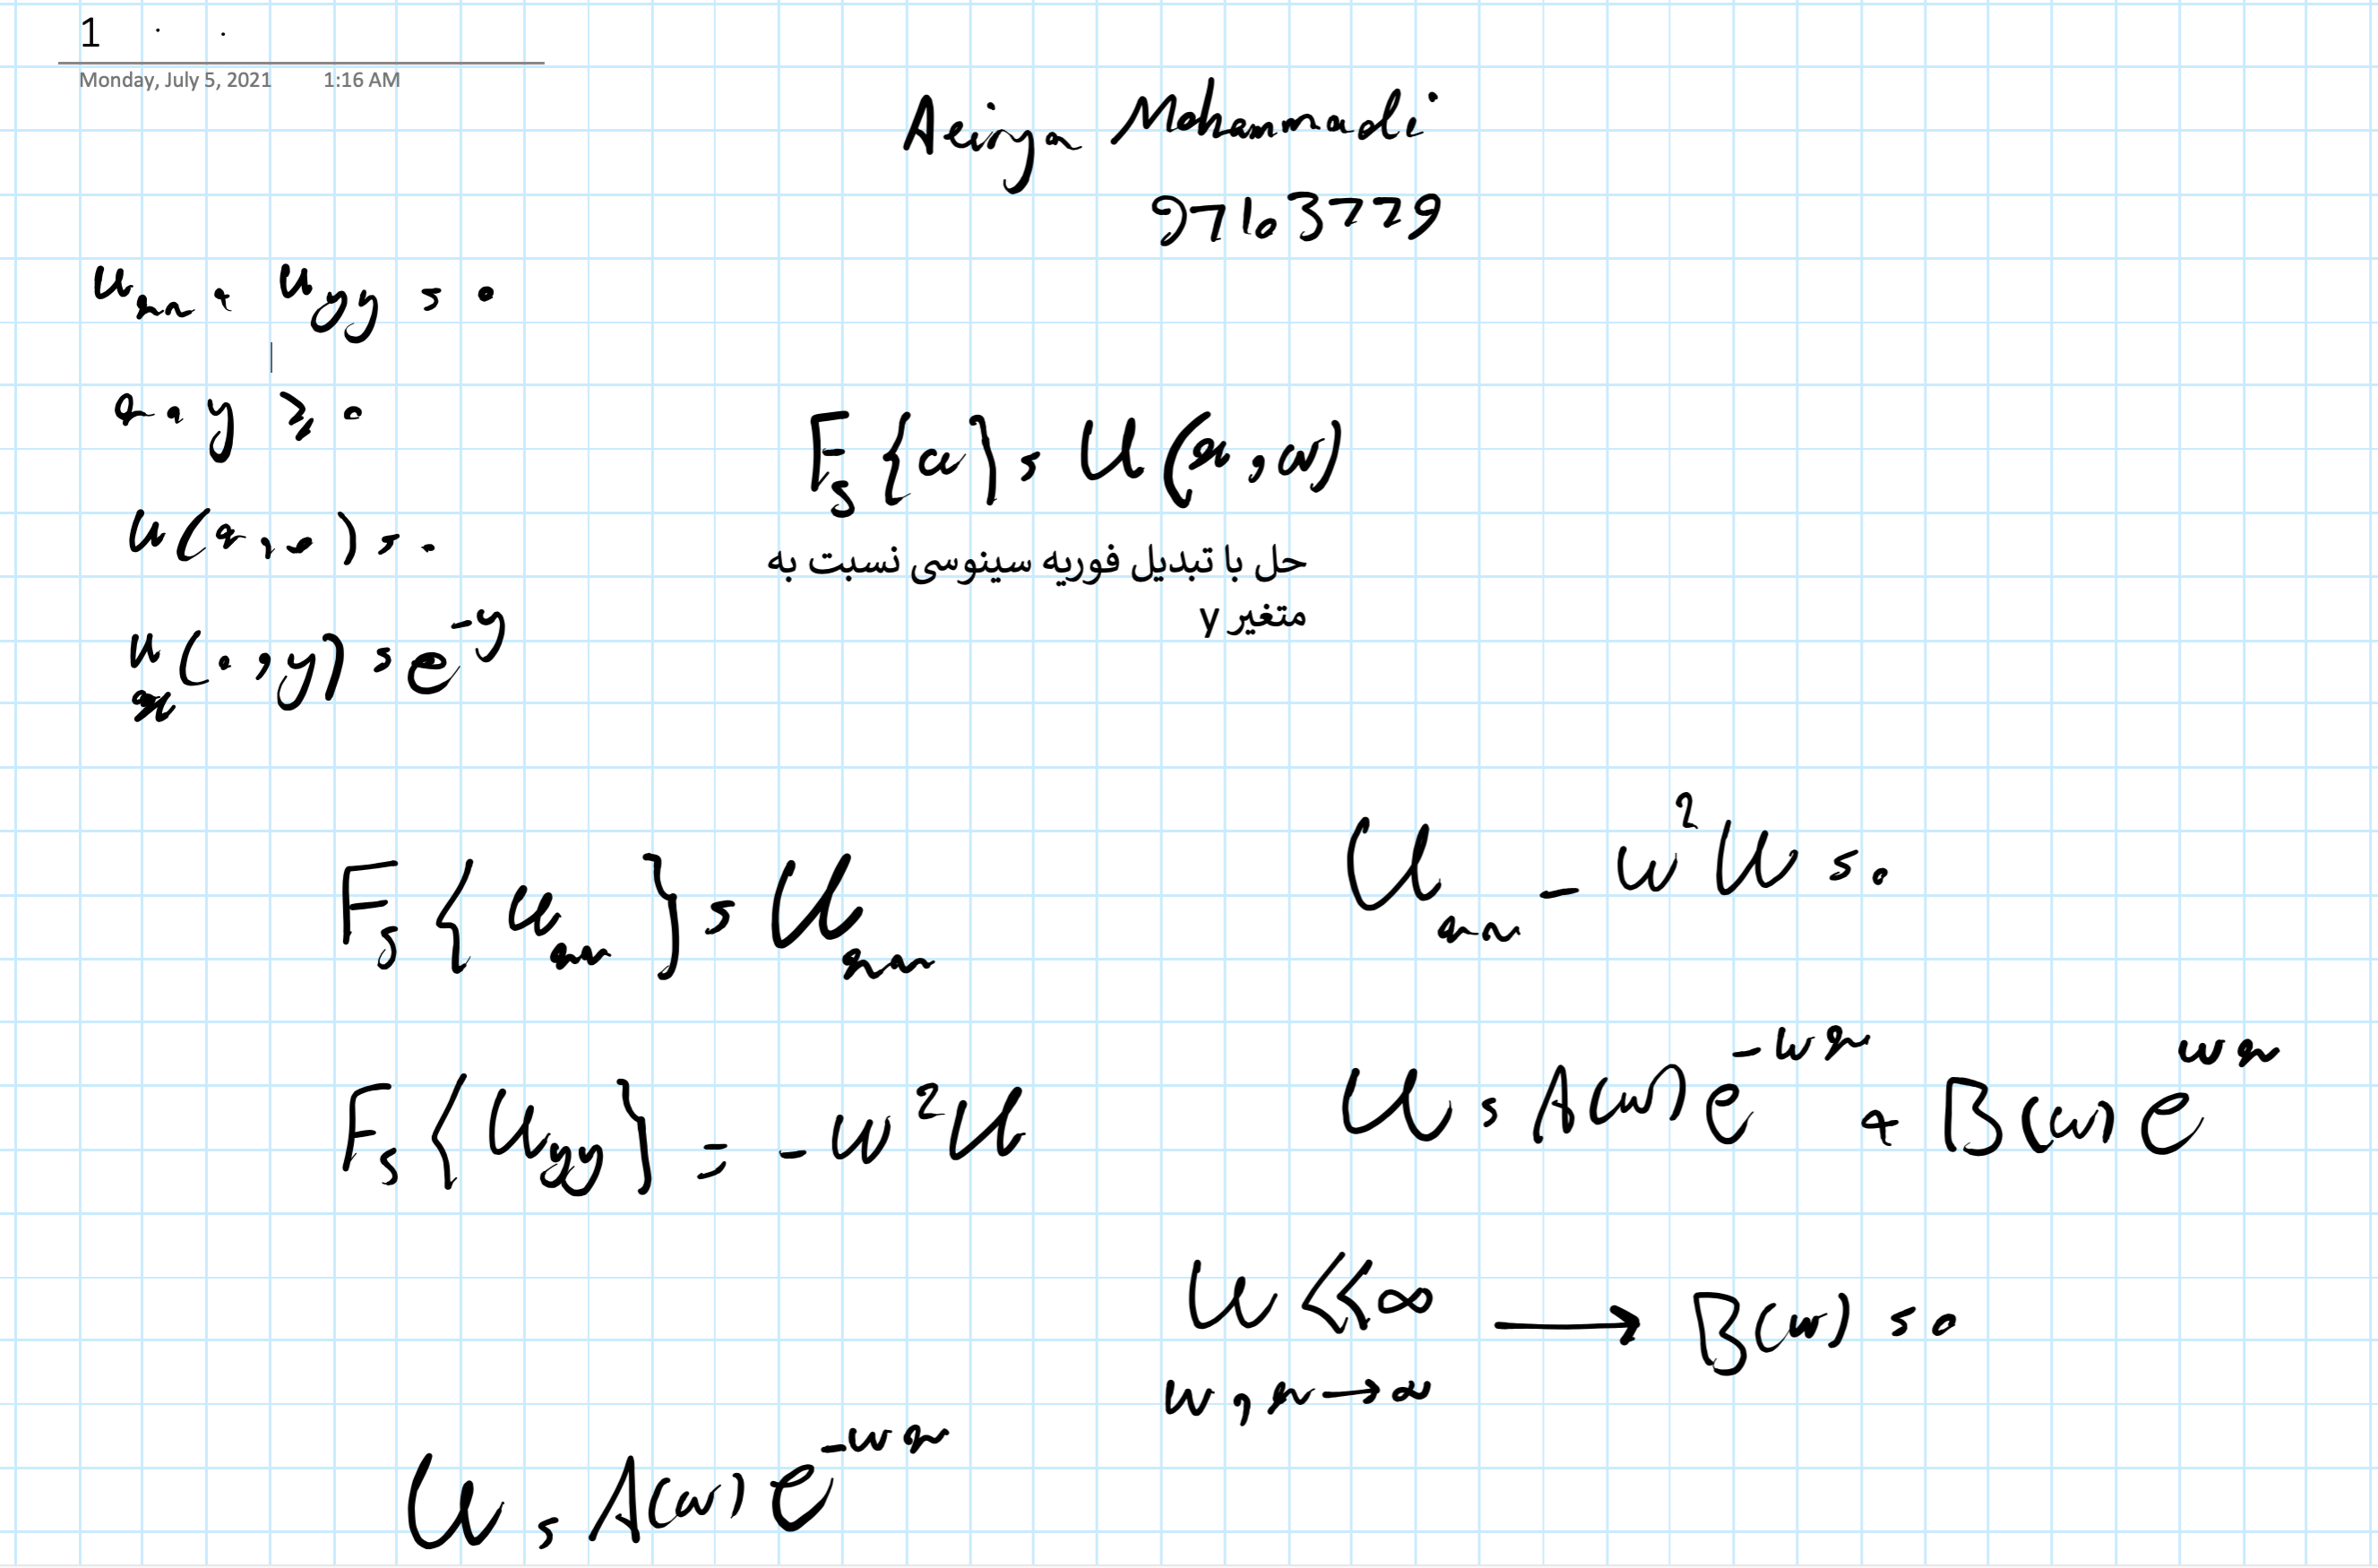 1
Monday, July 5, 2021 1:16 AM
Aeirya Mohammadi
97103779
u_xx + u_yy = 0
x, y ≥ 0
u(x, 0) = 0
u_x(0, y) = e^-y
F_s{u} = U(x, ω)
حل با تبدیل فوریه سینوسی نسبت به
متغیر y
F_s{u_xx} = U_xx
F_s{u_yy} = -ω²U
U_xx - ω²U = 0
U = A(ω)e^-ωx + B(ω)e^ωx
U ≪ ∞ → B(ω) = 0
ω, x → ∞
U = A(ω)e^-ωx